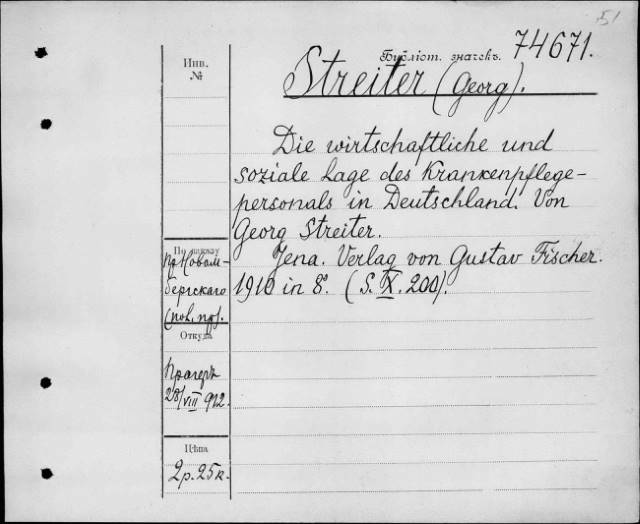 51
Библіот. значекъ. 74671.
Инв.
№
Streiter (Georg).
Die wirtschaftliche und
soziale Lage des Krankenpflege-
personals in Deutschland. Von
Georg Streiter.
Jena. Verlag von Gustav Fischer.
1910 in 8º. (S. IX. 200).
По заказу
пр. Новом-
бергскаго
Откуда
Прагеръ
28/VIII 912.
Цѣна
2 р. 25 к.